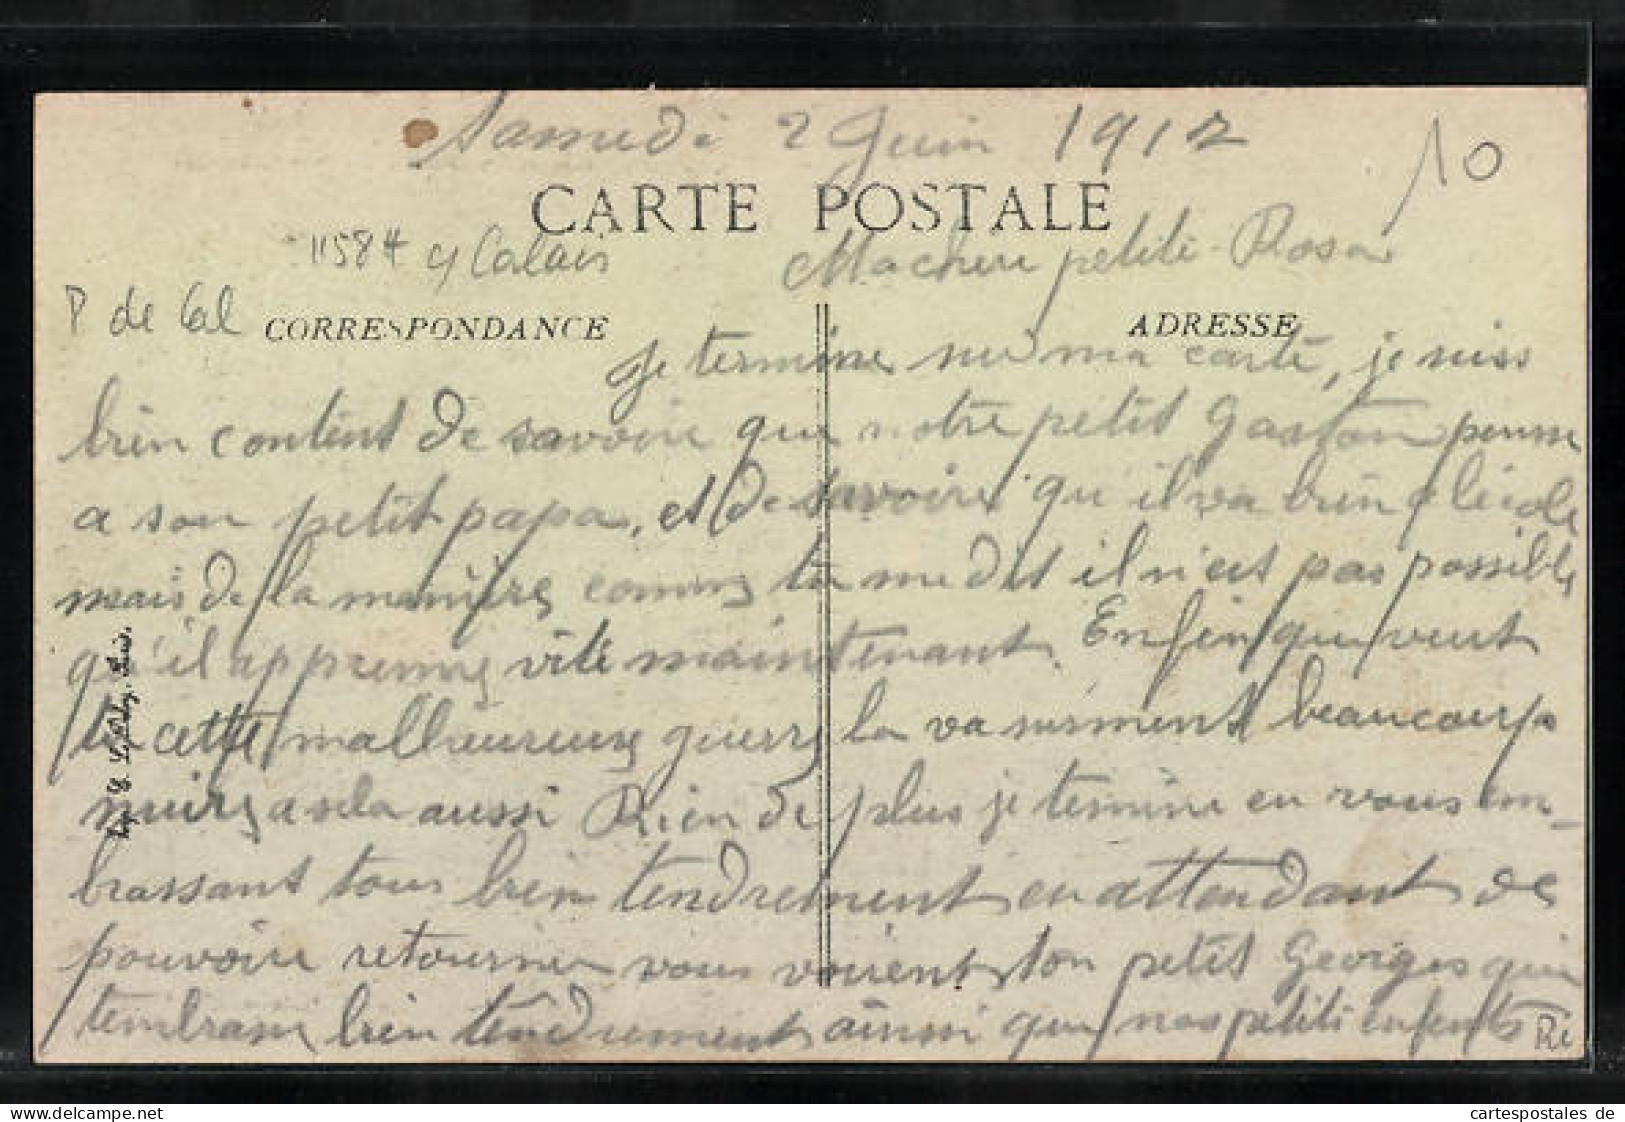 Samedi 2 Juin 1917
10
CARTE POSTALE
11584 Calais
Ma cheri petite Rosa
P de Cal
CORRESPONDANCE
ADRESSE
Je termine sur ma carte, je suiss
bien contint de savoire que notre petit Gaston pensse
a son petit papa, et de savoire qu'il va bien a lécole
mais de la manière comme tu me dit il n'est pas possible
qu'il apprenne vite maintenant. Enfin que veut
tu cette malheureuse guerre la va surment beaucoup
nuire a sela aussi Rien de plus je termine en vous em-
brassant tous bien tendrement en attendant de
pouvoire retourner vous voirent ton petit Georges qui
t'embrasse bien tendrement ainssi que nos petits enfents
Ri
cartespostales de